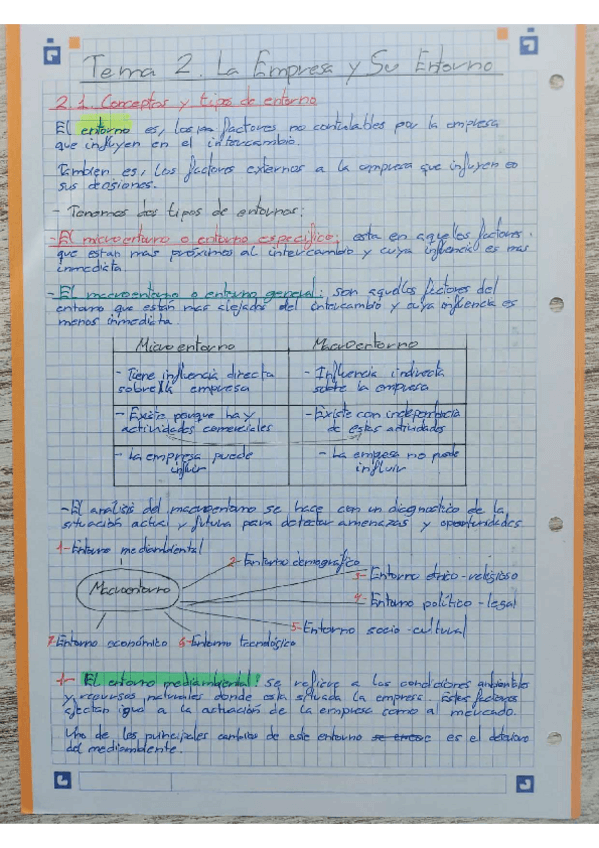 Tema 2. La Empresa y Su Entorno
2.1. Conceptos y tipos de entorno
El entorno es, los factores no controlables por la empresa
que influyen en el intercambio.
Tambien es, los factores externos a la empresa que influyen en
sus decisiones.
- Tenemos dos tipos de entornos:
- El microentorno o entorno especifico: esta en aquellos factores
que estan mas proximos al intercambio y cuya influencia es mas
inmediata.
- El macroentorno o entorno general: son aquellos factores del
entorno que estan mas alejados del intercambio y cuya influencia es
menos inmediata.
Microentorno Macroentorno
- Tiene influencia directa - Influencia indirecta
sobre la empresa sobre la empresa
- Existe porque hay - Existe con independencia
actividades comerciales de estas actividades
- La empresa puede - La empresa no puede
influir influir
- El analisis del macroentorno se hace con un diagnostico de la
situación actual y futura para detectar amenazas y oportunidades
1- Entorno mediambiental
2- Entorno demográfico
3- Entorno etnico-religioso
Macroentorno
4- Entorno político-legal
5- Entorno socio-cultural
7- Entorno económico 6- Entorno tecnológico
1- El entorno mediambiental: se refiere a las condiciones ambientales
y recursos naturales donde esta situada la empresa. Estos factores
afectan igual a la actuación de la empresa como al mercado.
Uno de los principales cambios de este entorno es el deterioro
del mediambiente.